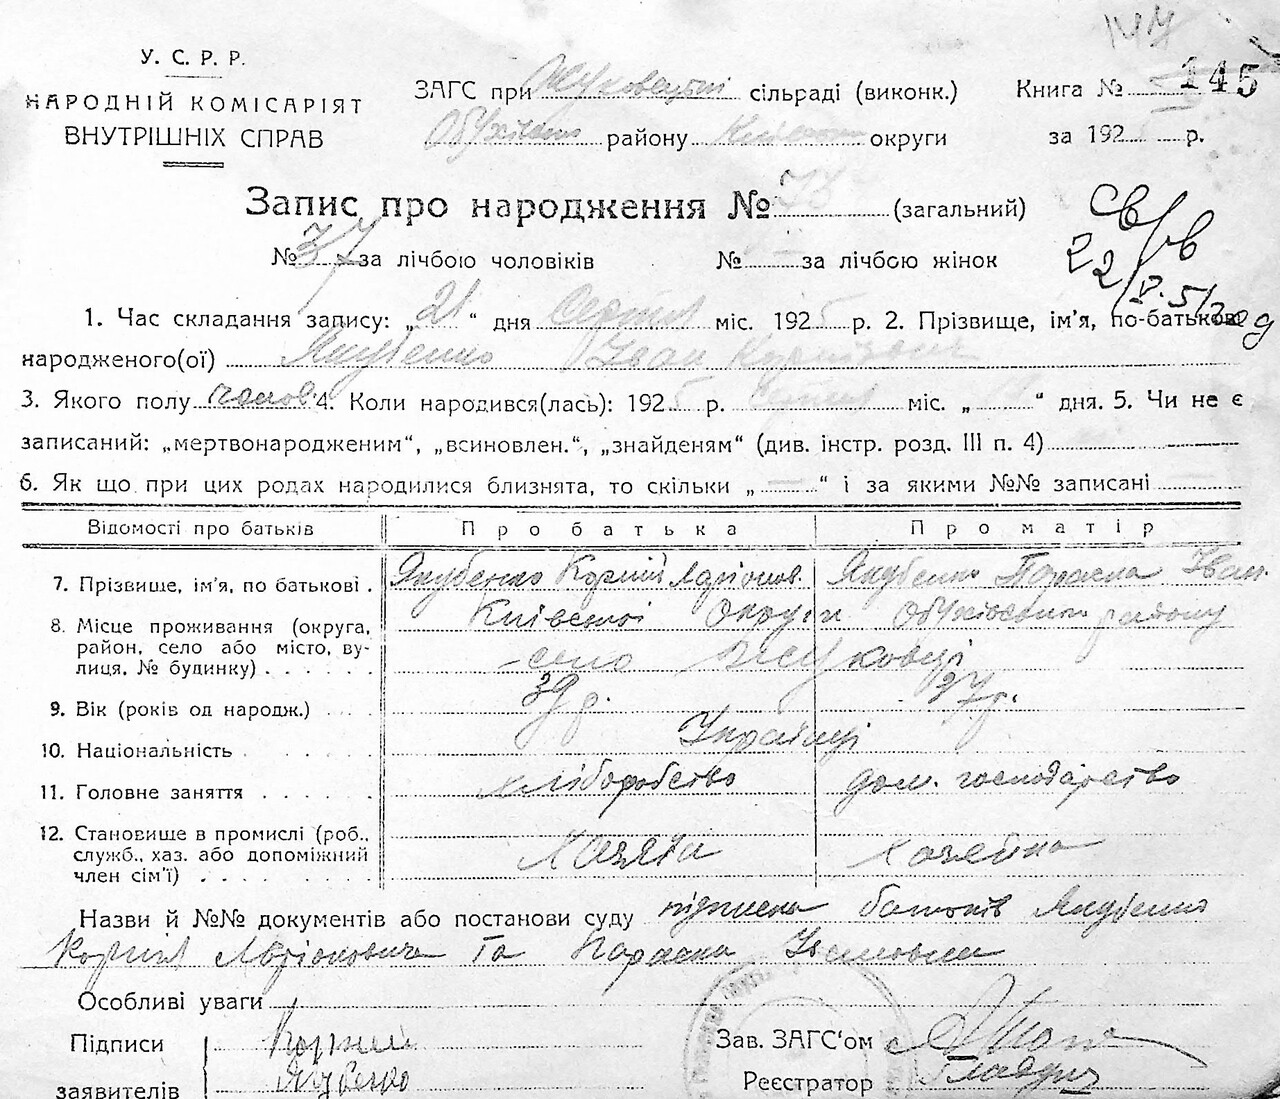 147
У. С. Р. Р.
НАРОДНІЙ КОМІСАРІЯТ
ВНУТРІШНІХ СПРАВ
ЗАГС при Жуковецькій сільраді (виконк.) Книга № 145
Обухівськ району Київськ округи за 1925 р.
Запис про народження № 73 (загальний)
№ 37 за лічбою чоловіків № — за лічбою жінок
22/V
1. Час складання запису: „21“ дня Серпня міс. 1925 р. 2. Прізвище, ім'я, по-батькове
народженого(ої) Якубенко Іван Корнієвич
3. Якого полу чолов 4. Коли народився(лась): 1925 р. Серпня міс. „ “ дня. 5. Чи не є
записаний: „мертвонародженим“, „всиновлен.“, „знайденям“ (див. інстр. розд. III п. 4) —
6. Як що при цих родах народилися близнята, то скільки „ — “ і за якими №№ записані —
Відомості про батьків Про батька Про матір
7. Прізвище, ім'я, по батькові . Якубенко Корній Ларіонов. Якубенко Параска Іван.
8. Місце проживання (округа, Київської Округи Обухівськ району
район, село або місто, ву-
лиця, № будинку) . . . . . . село Жуковеці
9. Вік (років од народж.) . . . . 39 р. 27 р.
10. Національність . . . . . . Українці
11. Головне заняття . . . . . . хліборобство дом. господарство
12. Становище в промислі (роб.,
служб., хаз. або допоміжний Хозяїн Хозяйка
член сім'ї) . . . . . . . .
Назви й №№ документів або постанови суду підписка батьків Якубенко
Корнія Ларіоновича та Параска Івановна
Особливі уваги
Підписи Корній Зав. ЗАГС'ом
заявителів Якубенко Реєстратор